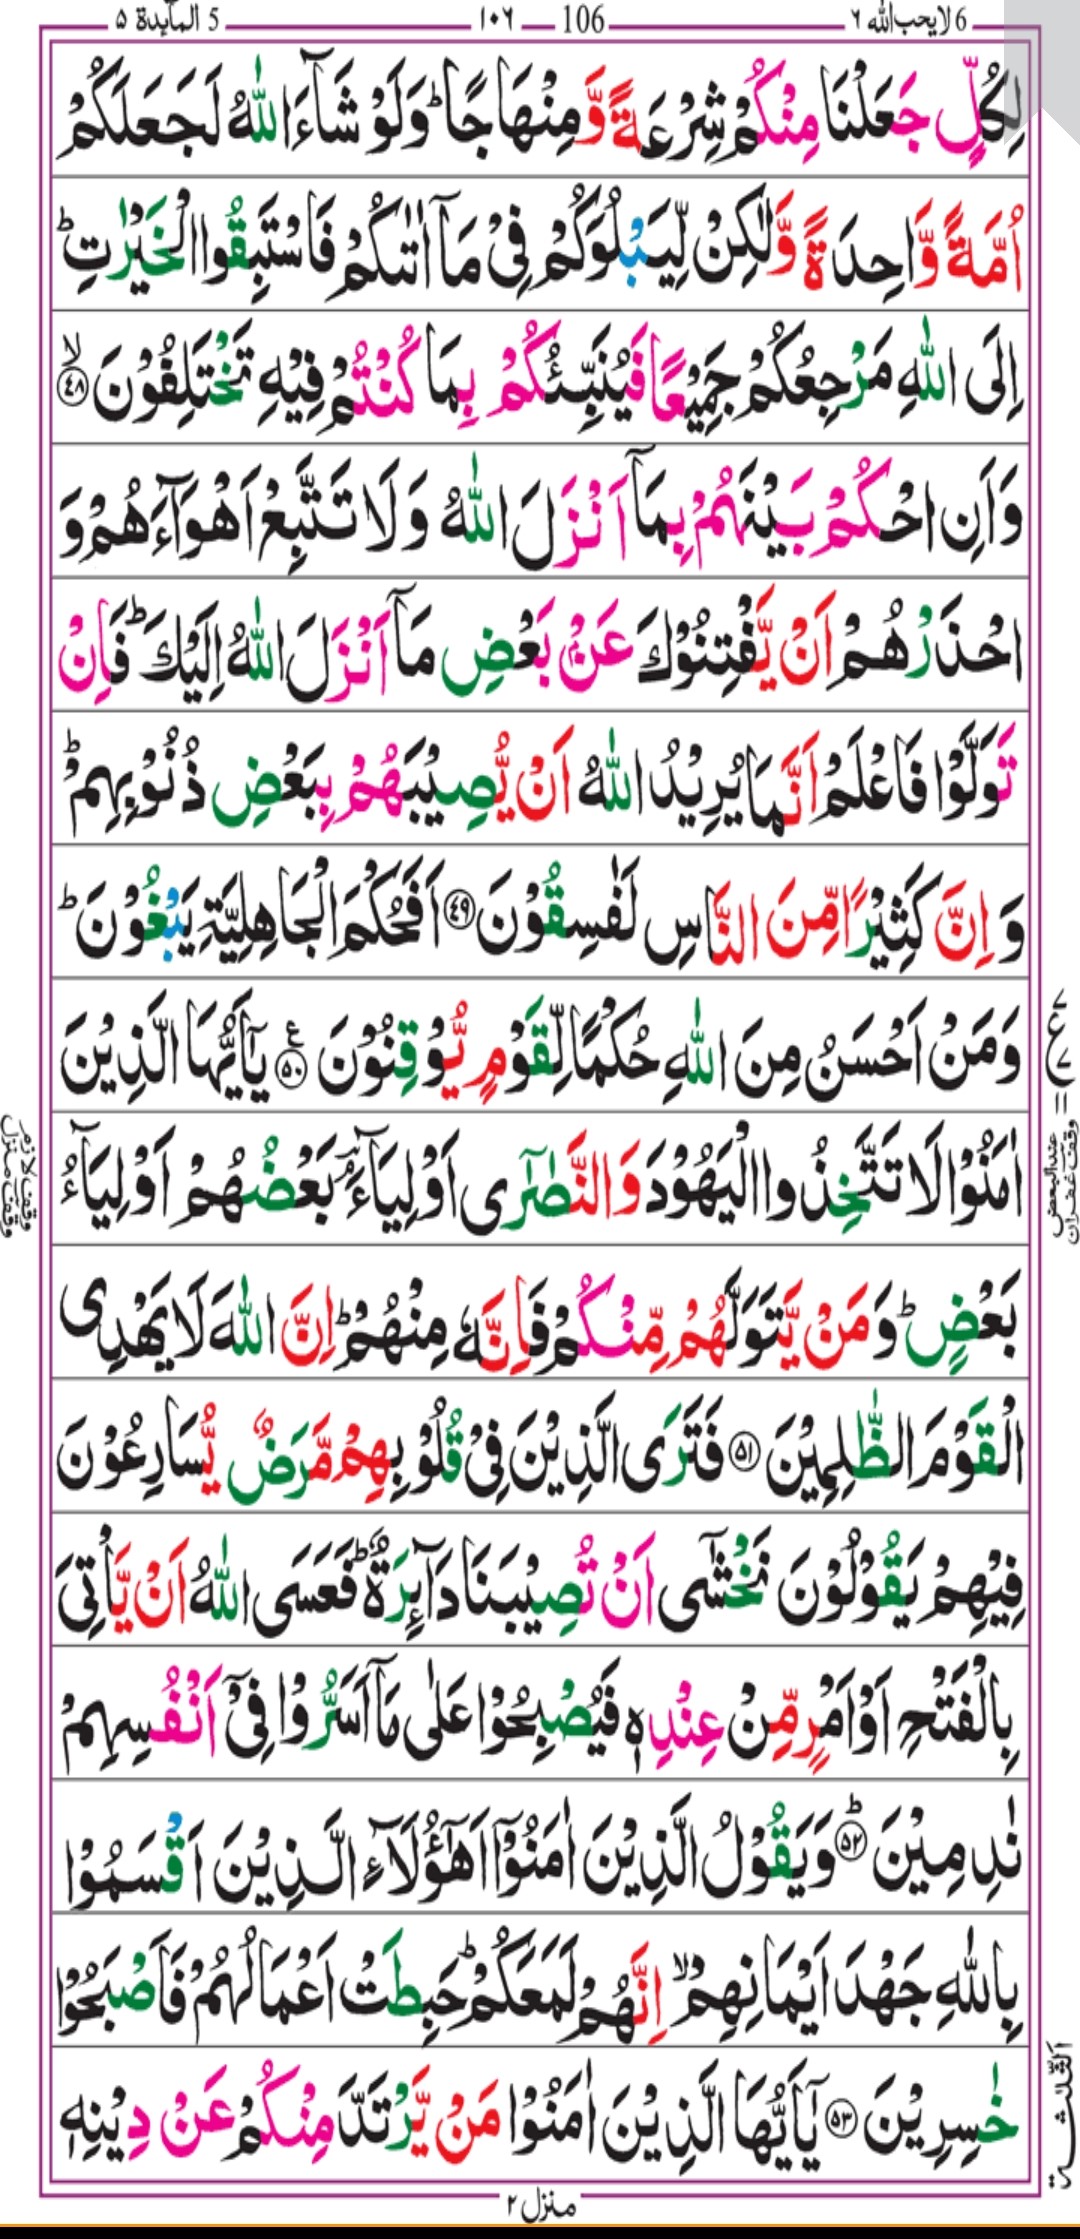 6 لا يحب الله ٦ — 106 — ١٠٦ — 5 المآىِٕدة ٥
لِكُلٍّ جَعَلْنَا مِنْكُمْ شِرْعَةً وَّمِنْهَاجًا ؕ وَلَوْ شَآءَ اللّٰهُ لَجَعَلَكُمْ
اُمَّةً وَّاحِدَةً وَّلٰكِنْ لِّيَبْلُوَكُمْ فِىْ مَاۤ اٰتٰىكُمْ فَاسْتَبِقُوا الْخَيْرٰتِ ؕ
اِلَى اللّٰهِ مَرْجِعُكُمْ جَمِيْعًا فَيُنَبِّئُكُمْ بِمَا كُنْتُمْ فِيْهِ تَخْتَلِفُوْنَ ۙ‏﴿۴۸﴾
وَاَنِ احْكُمْ بَيْنَهُمْ بِمَاۤ اَنْزَلَ اللّٰهُ وَلَا تَتَّبِعْ اَهْوَآءَهُمْ وَ
احْذَرْهُمْ اَنْ يَّفْتِنُوْكَ عَنْۢ بَعْضِ مَاۤ اَنْزَلَ اللّٰهُ اِلَيْكَ ؕ فَاِنْ
تَوَلَّوْا فَاعْلَمْ اَنَّمَا يُرِيْدُ اللّٰهُ اَنْ يُّصِيْبَهُمْ بِبَعْضِ ذُنُوْبِهِمْ ؕ
وَ اِنَّ كَثِيْرًا مِّنَ النَّاسِ لَفٰسِقُوْنَ ﴿۴۹﴾ اَفَحُكْمَ الْجَاهِلِيَّةِ يَبْغُوْنَ ؕ
وَمَنْ اَحْسَنُ مِنَ اللّٰهِ حُكْمًا لِّقَوْمٍ يُّوْقِنُوْنَ ﴿۵۰﴾ ع يٰۤاَيُّهَا الَّذِيْنَ
اٰمَنُوْا لَا تَتَّخِذُوا الْيَهُوْدَ وَالنَّصٰرٰۤى اَوْلِيَآءَ ۘؔ بَعْضُهُمْ اَوْلِيَآءُ
بَعْضٍ ؕ وَمَنْ يَّتَوَلَّهُمْ مِّنْكُمْ فَاِنَّهٗ مِنْهُمْ ؕ اِنَّ اللّٰهَ لَا يَهْدِى
الْقَوْمَ الظّٰلِمِيْنَ ﴿۵۱﴾ فَتَرَى الَّذِيْنَ فِىْ قُلُوْبِهِمْ مَّرَضٌ يُّسَارِعُوْنَ
فِيْهِمْ يَقُوْلُوْنَ نَخْشٰٓى اَنْ تُصِيْبَنَا دَآىِٕرَةٌ ؕ فَعَسَى اللّٰهُ اَنْ يَّاْتِىَ
بِالْفَتْحِ اَوْ اَمْرٍ مِّنْ عِنْدِهٖ فَيُصْبِحُوْا عَلٰى مَاۤ اَسَرُّوْا فِىْۤ اَنْفُسِهِمْ
نٰدِمِيْنَ ؕ‏﴿۵۲﴾ وَيَقُوْلُ الَّذِيْنَ اٰمَنُوْۤا اَهٰٓؤُلَآءِ الَّذِيْنَ اَقْسَمُوْا
بِاللّٰهِ جَهْدَ اَيْمَانِهِمْ ۙ اِنَّهُمْ لَمَعَكُمْ ؕ حَبِطَتْ اَعْمَالُهُمْ فَاَصْبَحُوْا
خٰسِرِيْنَ ﴿۵۳﴾ يٰۤاَيُّهَا الَّذِيْنَ اٰمَنُوْا مَنْ يَّرْتَدَّ مِنْكُمْ عَنْ دِيْنِهٖ
منزل ٢
ع ٧
وقف غفران
عند البعض
وقف لازم
وقف منزل
الثلثة